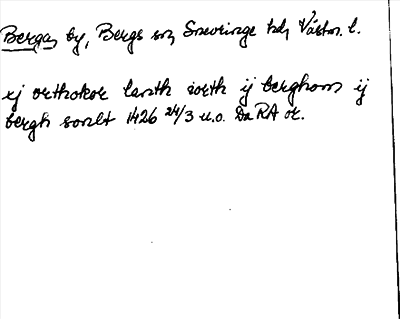 Berga, by, Bergs sn, Snevringe hd, Västm. l.
ej orthokor lanth iorth ij berghom ij
bergh soelt 1426 24/3 u.o. Da RA or.